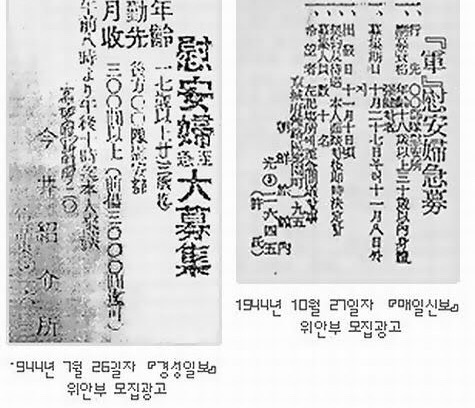 慰安婦至急大募集
年齢 一七歳以上廿三歳
勤先 後方〇〇隊慰安部
月收 三〇〇圓以上(前借三〇〇〇圓迄可)
午前八時より午後十時迄本人來談
今井紹介所
『軍』慰安婦急募
一、行先 〇〇部隊慰安所
一、應募資格 年齡十八歳以上三十歳以内身體
一、募集期日 十月二十七日 十一月八日
一、出發日 十一月十日頃
一、契約及待遇 本人面談後卽時決定
一、募集人員 數十名
一、希望者 左記場所
朝鮮旅館內
光③二六四五
(許氏)
1944년 7월 26일자 『경성일보』
위안부 모집광고
1944년 10월 27일자 『매일신보』
위안부 모집광고